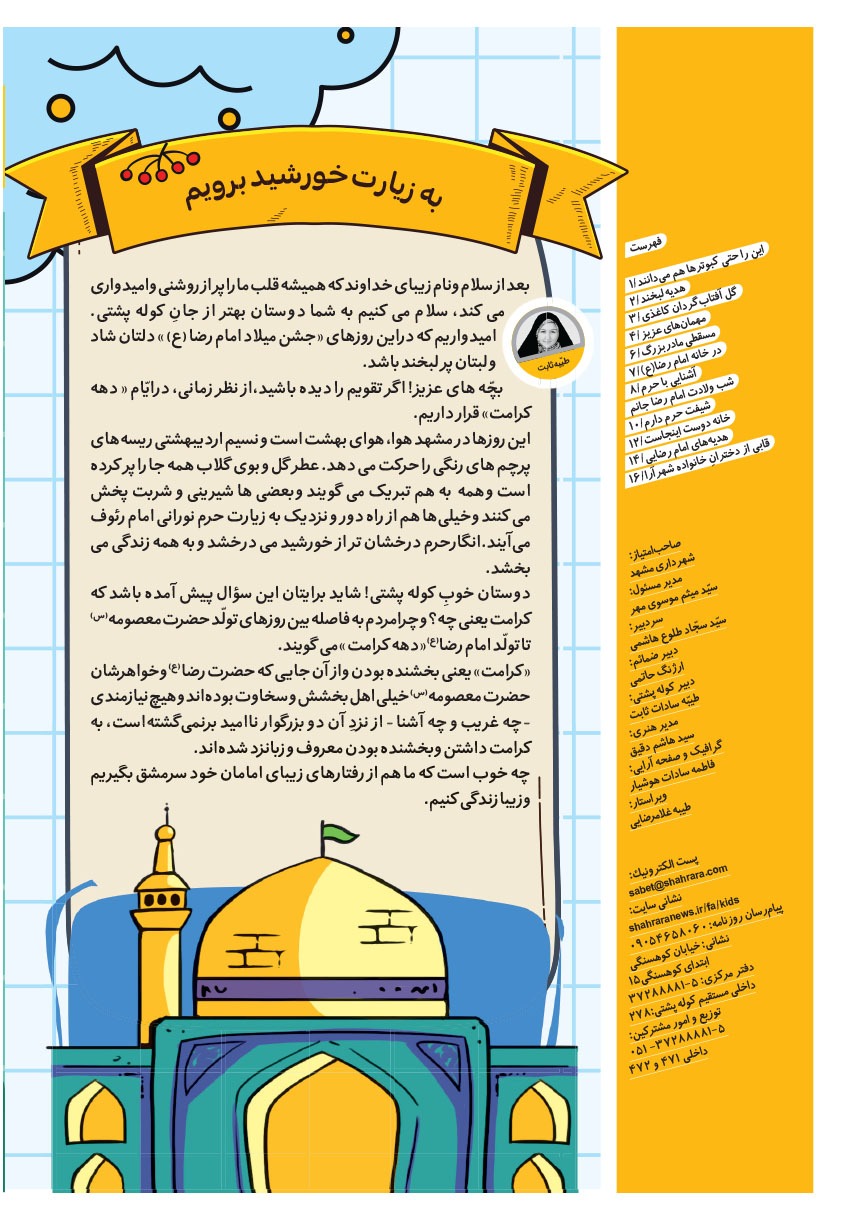 به زیارت خورشید برویم
بعد از سلام ونام زیبای خداوند که همیشه قلب ما را پر از روشنی وامیدواری
می کند، سلام می کنیم به شما دوستان بهتر از جانِ کوله پشتی.
امیدواریم که دراین روزهای «جشن میلاد امام رضا (ع) » دلتان شاد
ولبتان پر لبخند باشد.
طیّبه ثابت
بچّه های عزیز! اگر تقویم را دیده باشید،از نظر زمانی، درایّام « دهه
کرامت» قرار داریم.
این روزها در مشهد هوا، هوای بهشت است و نسیم اردیبهشتی ریسه های
پرچم های رنگی را حرکت می دهد. عطر گل و بوی گلاب همه جا را پر کرده
است وهمه به هم تبریک می گویند وبعضی ها شیرینی و شربت پخش
می کنند وخیلی ها هم از راه دور و نزدیک به زیارت حرم نورانی امام رئوف
می آیند.انگارحرم درخشان تر از خورشید می درخشد و به همه زندگی می
بخشد.
دوستان خوبِ کوله پشتی! شاید برایتان این سؤال پیش آمده باشد که
کرامت یعنی چه؟ وچرامردم به فاصله بین روزهای تولّد حضرت معصومه(س)
تا تولّد امام رضا(ع)« دهه کرامت »می گویند.
«کرامت» یعنی بخشنده بودن واز آن جایی که حضرت رضا(ع) وخواهرشان
حضرت معصومه(س)خیلی اهل بخشش وسخاوت بوده‌اند وهیچ نیازمندی
-چه غریب و چه آشنا - از نزدِ آن دو بزرگوار ناامید برنمی‌گشته است، به
کرامت داشتن وبخشنده بودن معروف و زبانزد شده‌اند.
چه خوب است که ما هم از رفتارهای زیبای امامان خود سرمشق بگیریم
وزیبا زندگی کنیم.
فهرست
این را حتی کبوترها هم می‌دانند/۱
هدیه لبخند/۲
گل آفتاب‌گردان کاغذی/۳
مهمان‌های عزیز/۴
مسقطی مادربزرگ/۶
در خانه امام رضا(ع)/۷
آشنایی با حرم/۸
شب ولادت امام رضا جانم
شیفت حرم دارم/۱۰
خانه دوست اینجاست/۱۲
هدیه‌های امام رضایی/۱۴
قابی از دختران خانواده شهرآرا/۱۶
صاحب‌امتیاز:
شهرداری مشهد
مدیر مسئول:
سیّد میثم موسوی مهر
سردبیر:
سیّد سجّاد طلوع هاشمی
دبیر ضمائم:
ارژنگ حاتمی
دبیر کوله پشتی:
طیّبه سادات ثابت
مدیر هنری:
سید هاشم دقیق
گرافیک و صفحه آرایی:
فاطمه سادات هوشیار
ویراستار:
طیبه غلامرضایی
پست الکترونیك:
sabet@shahrara.com
نشانی سایت:
shahraranews.ir/fa/kids
پیام‌رسان روزنامه: ۰۹۰۵۴۶۵۸۰۶۰
نشانی: خیابان کوهسنگی
ابتدای کوهسنگی۱۵
دفتر مرکزی: ۵-۳۷۲۸۸۸۸۱
داخلی مستقیم کوله پشتی:۲۷۸
توزیع و امور مشترکین:
۰۵۱-۳۷۲۸۸۸۸۱-۵
داخلی ۴۷۱ و ۴۷۲